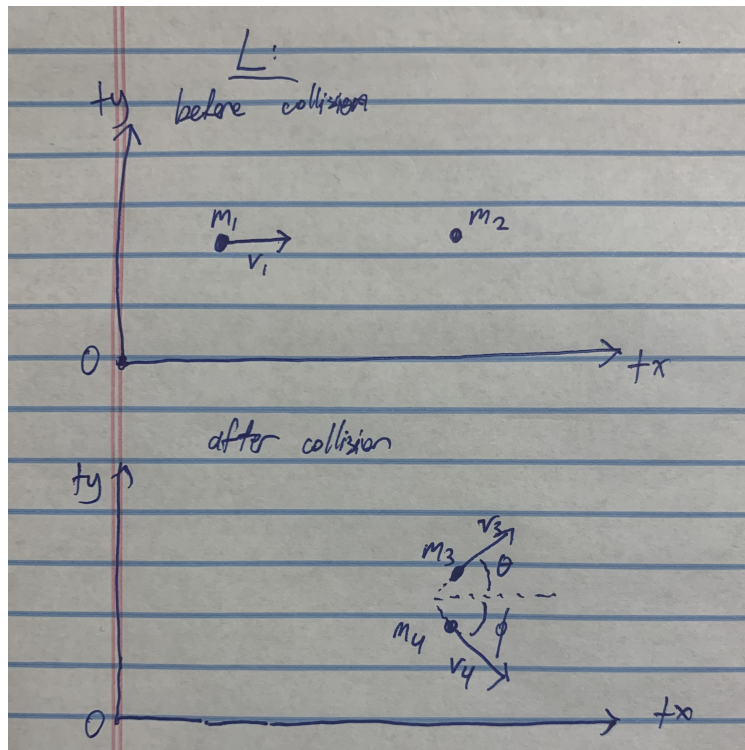 L:
before collision
+y
m₁
m₂
v₁
0
+x
after collision
+y
v₃
m₃
θ
m₄
ϕ
v₄
0
+x